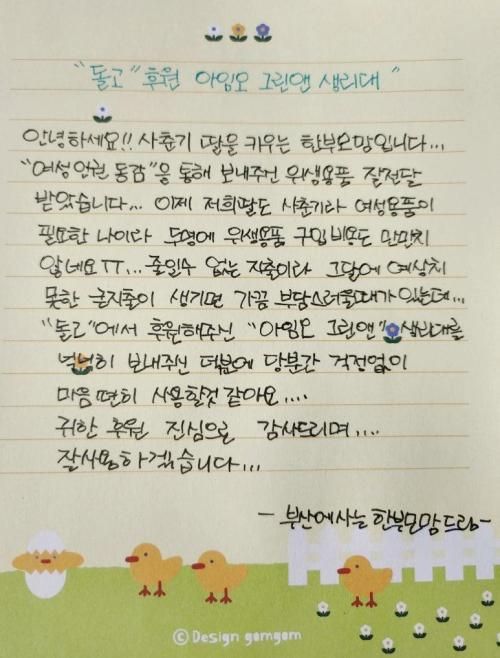 "돌고" 후원 아임오 그린앤 생리대"
안녕하세요!! 사춘기 딸을 키우는 한부모맘입니다...
"여성인권 동감"을 통해 보내주신 위생용품 잘전달
받았습니다... 이제 저희딸도 사춘기라 여성용품이
필요한 나이라 두명에 위생용품 구입 비용도 만만치
않네요ㅠㅠ...줄일수 없는 지출이라 그달에 예상치
못한 큰지출이 생기면 가끔 부담스러울때가 있는데...
"돌고"에서 후원해주신 "아임오 그린앤" 생리대를
넉넉히 보내주신 덕분에 당분간 걱정없이
마음 편히 사용할것 같아요....
귀한 후원 진심으로 감사드리며....
잘사용하겠습니다...
- 부산에사는 한부모맘드림-
©Design gomgom